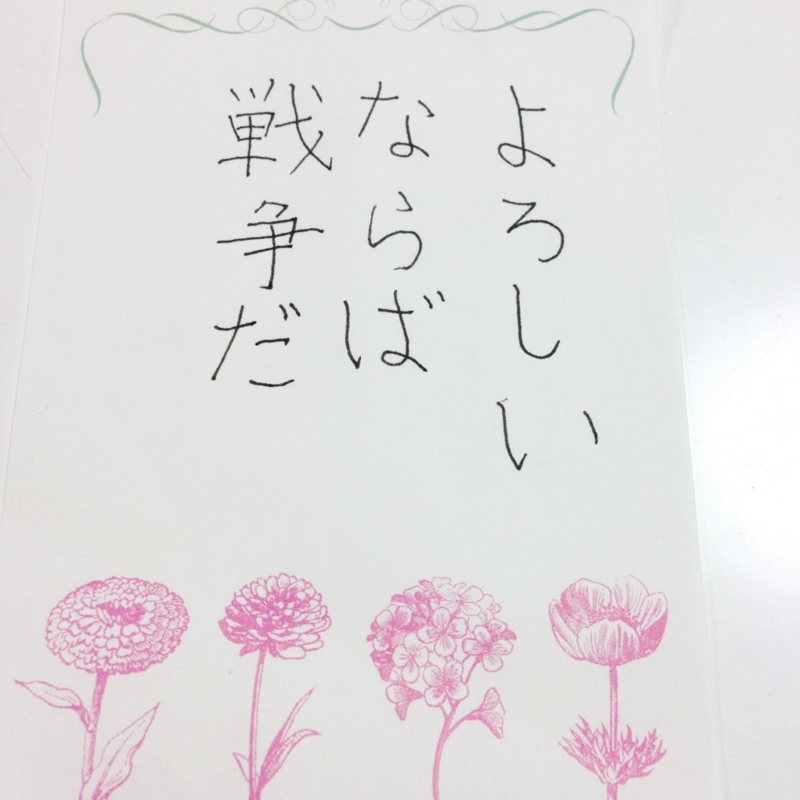 よろしい
ならば
戦争だ